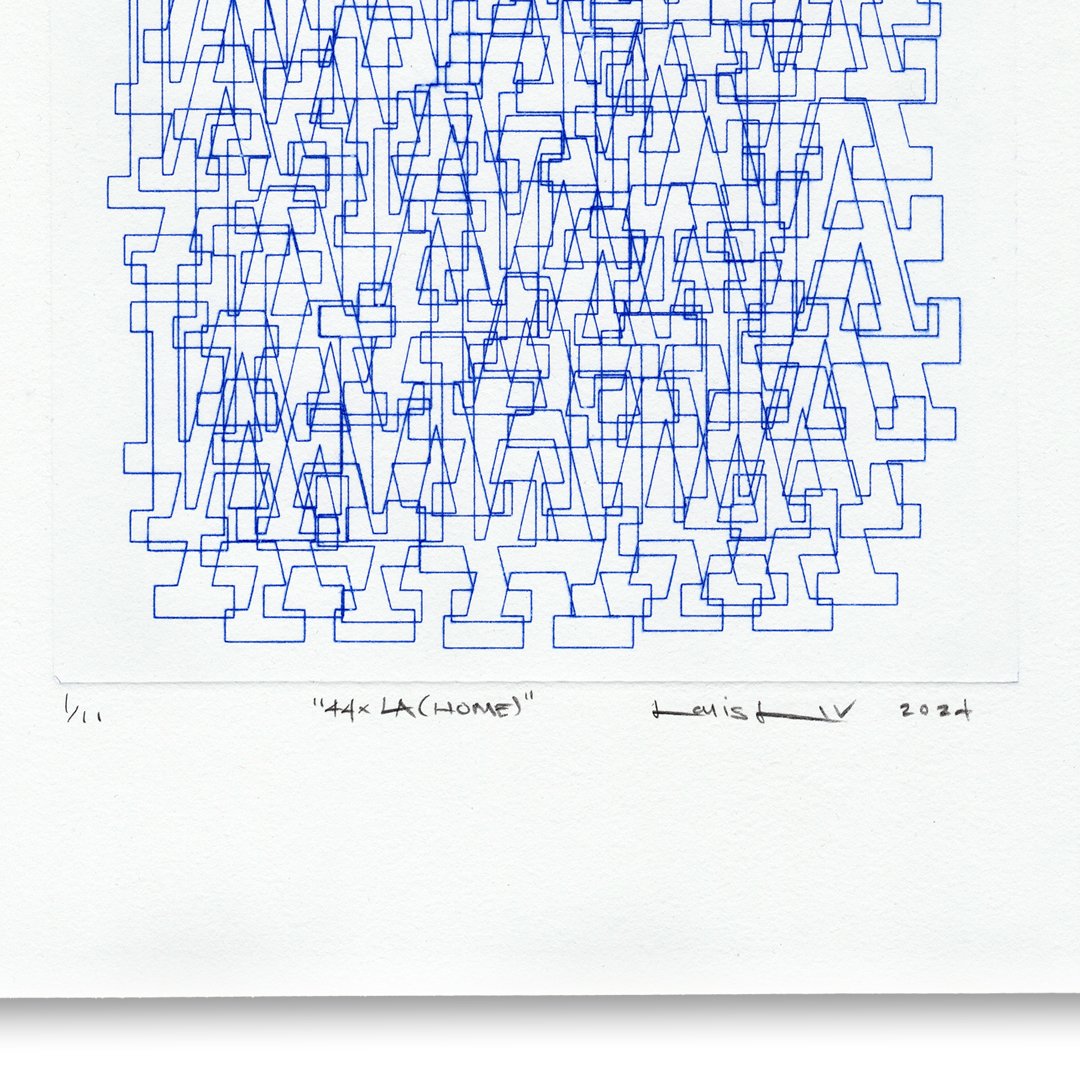 1/11 "44x LA (HOME)" Louis L IV 2024